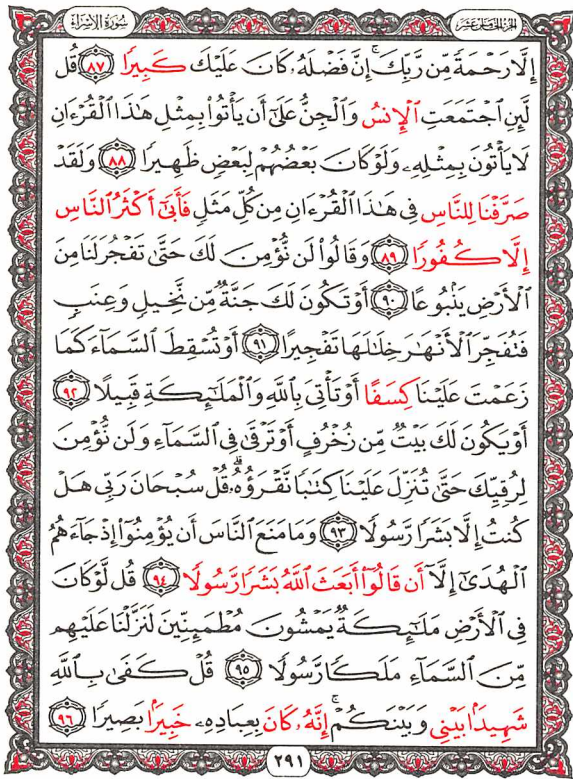 الجزء الخامس عشر سورة الإسراء
إِلَّا رَحْمَةً مِّن رَّبِّكَ ۚ إِنَّ فَضْلَهُۥ كَانَ عَلَيْكَ كَبِيرًا ٨٧ قُل
لَّئِنِ ٱجْتَمَعَتِ ٱلْإِنسُ وَٱلْجِنُّ عَلَىٰٓ أَن يَأْتُوا۟ بِمِثْلِ هَـٰذَا ٱلْقُرْءَانِ
لَا يَأْتُونَ بِمِثْلِهِۦ وَلَوْ كَانَ بَعْضُهُمْ لِبَعْضٍ ظَهِيرًا ٨٨ وَلَقَدْ
صَرَّفْنَا لِلنَّاسِ فِى هَـٰذَا ٱلْقُرْءَانِ مِن كُلِّ مَثَلٍ فَأَبَىٰٓ أَكْثَرُ ٱلنَّاسِ
إِلَّا كُفُورًا ٨٩ وَقَالُوا۟ لَن نُّؤْمِنَ لَكَ حَتَّىٰ تَفْجُرَ لَنَا مِنَ
ٱلْأَرْضِ يَنۢبُوعًا ٩٠ أَوْ تَكُونَ لَكَ جَنَّةٌ مِّن نَّخِيلٍ وَعِنَبٍ
فَتُفَجِّرَ ٱلْأَنْهَـٰرَ خِلَـٰلَهَا تَفْجِيرًا ٩١ أَوْ تُسْقِطَ ٱلسَّمَآءَ كَمَا
زَعَمْتَ عَلَيْنَا كِسَفًا أَوْ تَأْتِىَ بِٱللَّهِ وَٱلْمَلَـٰٓئِكَةِ قَبِيلًا ٩٢
أَوْ يَكُونَ لَكَ بَيْتٌ مِّن زُخْرُفٍ أَوْ تَرْقَىٰ فِى ٱلسَّمَآءِ وَلَن نُّؤْمِنَ
لِرُقِيِّكَ حَتَّىٰ تُنَزِّلَ عَلَيْنَا كِتَـٰبًا نَّقْرَؤُهُۥ ۗ قُلْ سُبْحَانَ رَبِّى هَلْ
كُنتُ إِلَّا بَشَرًا رَّسُولًا ٩٣ وَمَا مَنَعَ ٱلنَّاسَ أَن يُؤْمِنُوٓا۟ إِذْ جَآءَهُمُ
ٱلْهُدَىٰٓ إِلَّآ أَن قَالُوٓا۟ أَبَعَثَ ٱللَّهُ بَشَرًا رَّسُولًا ٩٤ قُل لَّوْ كَانَ
فِى ٱلْأَرْضِ مَلَـٰٓئِكَةٌ يَمْشُونَ مُطْمَئِنِّينَ لَنَزَّلْنَا عَلَيْهِم
مِّنَ ٱلسَّمَآءِ مَلَكًا رَّسُولًا ٩٥ قُلْ كَفَىٰ بِٱللَّهِ
شَهِيدًۢا بَيْنِى وَبَيْنَكُمْ ۚ إِنَّهُۥ كَانَ بِعِبَادِهِۦ خَبِيرًۢا بَصِيرًا ٩٦
٢٩١